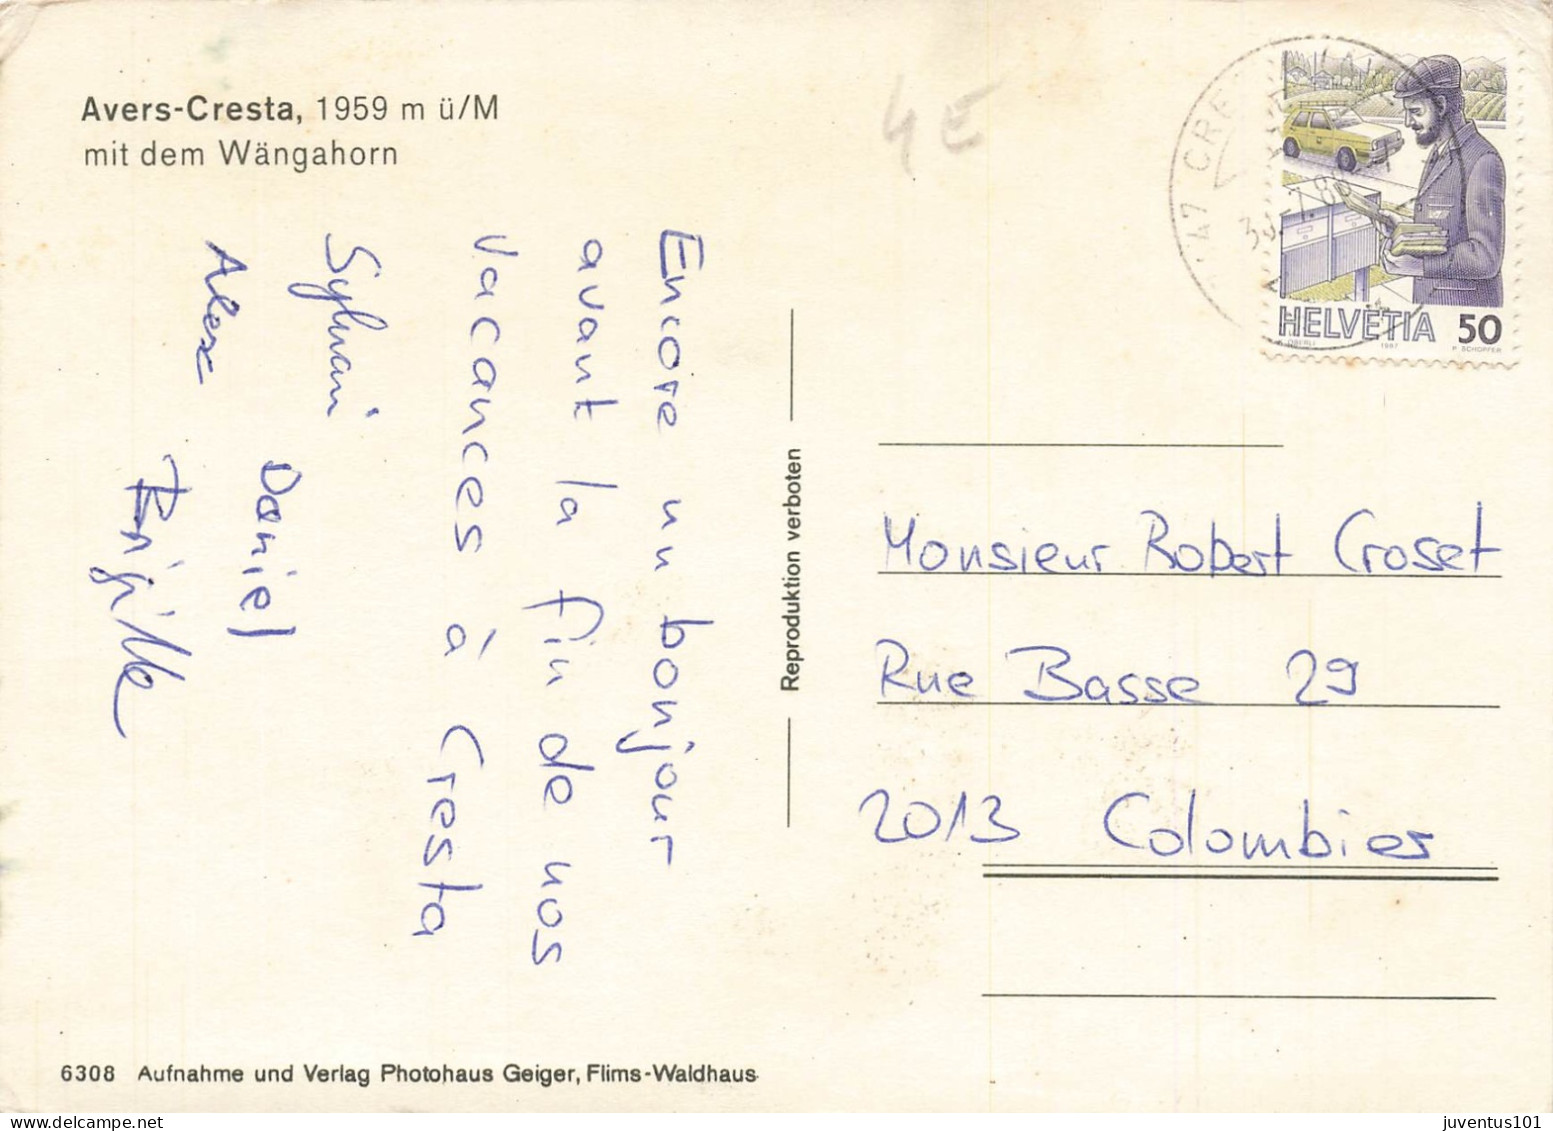 Avers-Cresta, 1959 m ü/M
mit dem Wängahorn
4E
HELVETIA 50
1987
Encore un bonjour
avant la fin de nos
vacances à Cresta
Sylvain
Daniel
Alex
Brigitte
Reproduktion verboten
Monsieur Robert Croset
Rue Basse 29
2013 Colombier
6308 Aufnahme und Verlag Photohaus Geiger, Flims-Waldhaus
juventus101